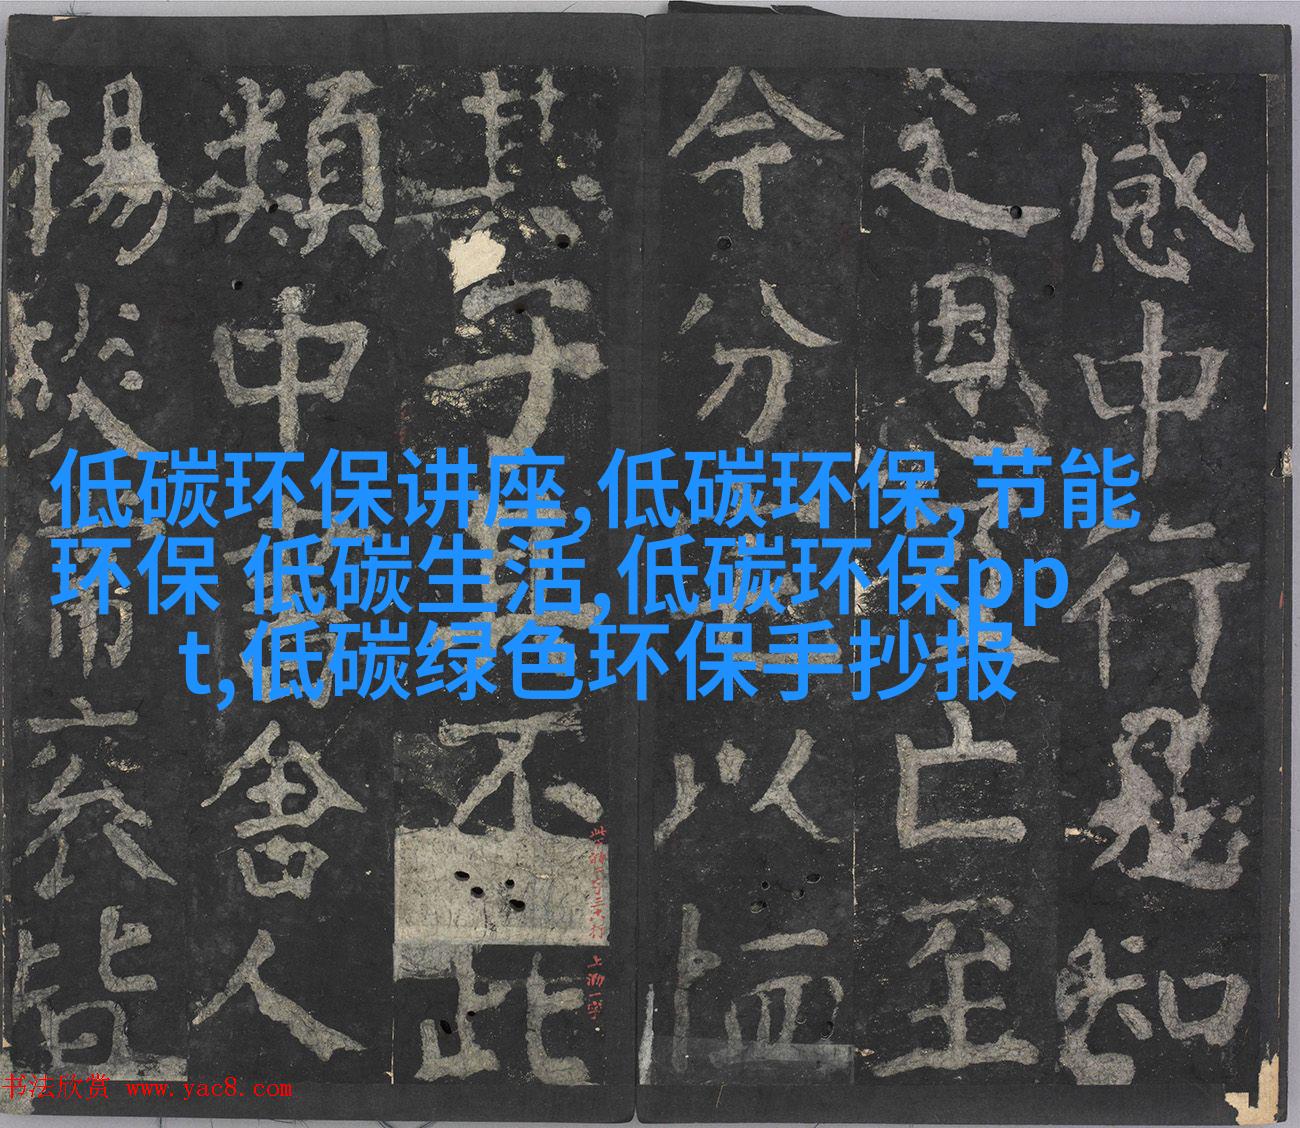 低碳环保讲座,低碳环保,节能
环保 低碳生活,低碳环保pp
t,低碳绿色环保手抄报
感中行愚知
之恩亡至
今分以恤
其子不此
類中書舍人
揚常袞皆
上泐一字
书法欣赏 www.yac8.com